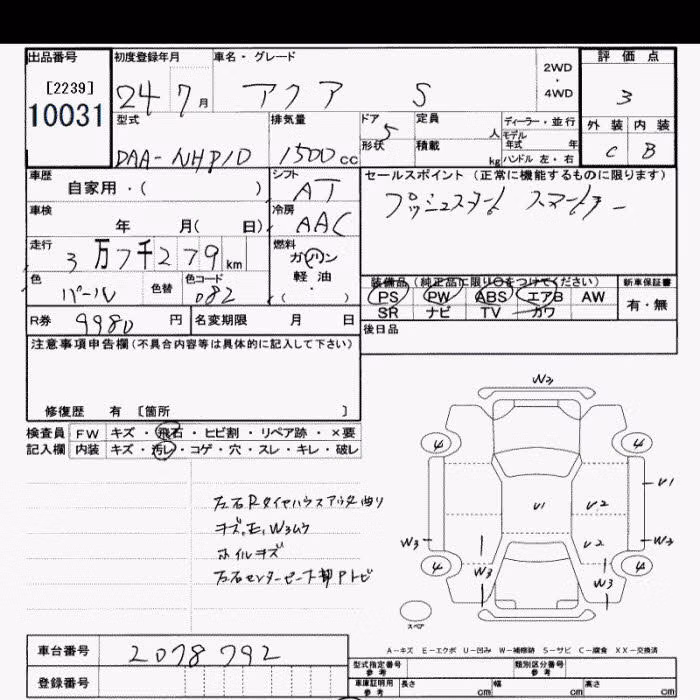 出品番号 初度登録年月 車名・グレード 評価点
[2239]
10031
24 7月 アクア S 2WD・4WD 3
型式 排気量 ドア 定員 ディーラー・並行 外装 内装
DAA-NHP10 1500cc 5 人 モデル年式 年 C B
形状 積載 kg ハンドル 左・右
車歴 シフト セールスポイント(正常に機能するものに限ります)
自家用・( ) AT プッシュスタート スマートキー
車検 冷房
年 月( 日) AAC
走行 燃料
3万7千279km ガソリン
軽油
・( )
色 色替 色コード 装備品(純正品に限り○をつけてください) 新車保証書
パール 082 PS PW ABS エアB AW 有・無
SR ナビ TV カワ
R券 9980円 名変期限 月 日 後日品
注意事項申告欄(不具合内容等は具体的に記入して下さい)
修復歴 有 [箇所 ]
検査員 FW キズ・飛石・ヒビ割・リペア跡・×要
記入欄 内装 キズ・汚レ・コゲ・穴・スレ・キレ・破レ
左右Rタイヤハウスアウタ曲り
キズ,E,W3ムラ
ホイルキズ
左右センターピラー Pトビ
W3
4 4
U1
U1 U2
W3 U2 W2
4 4
W3 W3
スペア
A-キズ E-エクボ U-凹み W-補修跡 S-サビ C-腐食 XX-交換済
車台番号 2078792
登録番号
型式指定番号 参考 類別区分番号 参考
車庫証明用 参考 長さ cm 幅 cm 高さ cm